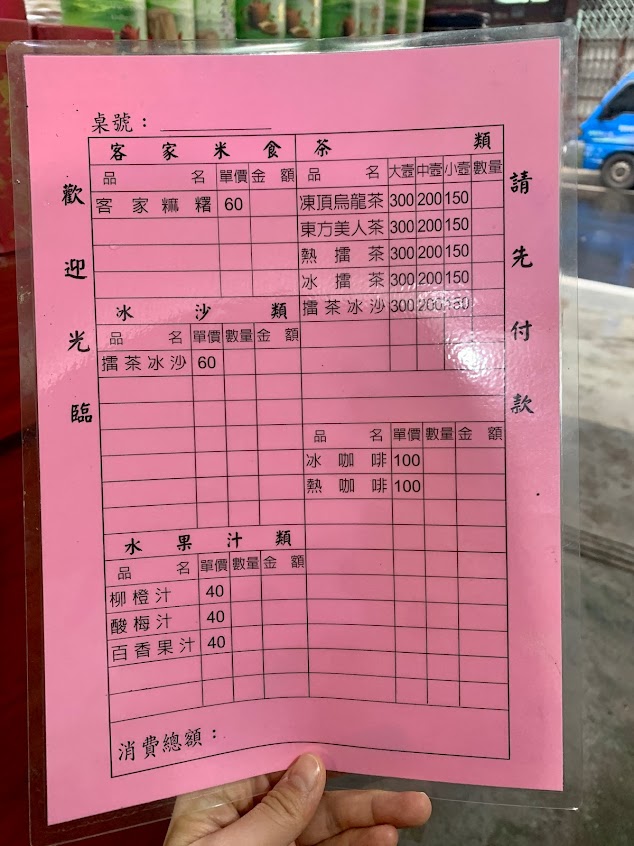 桌號：
歡迎光臨
客家米食
品名 單價 金額
客家麻糬 60
冰沙類
品名 單價 數量 金額
擂茶冰沙 60
水果汁類
品名 單價 數量 金額
柳橙汁 40
酸梅汁 40
百香果汁 40
茶類
品名 大壺 中壺 小壺 數量
凍頂烏龍茶 300 200 150
東方美人茶 300 200 150
熱擂茶 300 200 150
冰擂茶 300 200 150
擂茶冰沙 300 200 150
品名 單價 數量 金額
冰咖啡 100
熱咖啡 100
請先付款
消費總額：